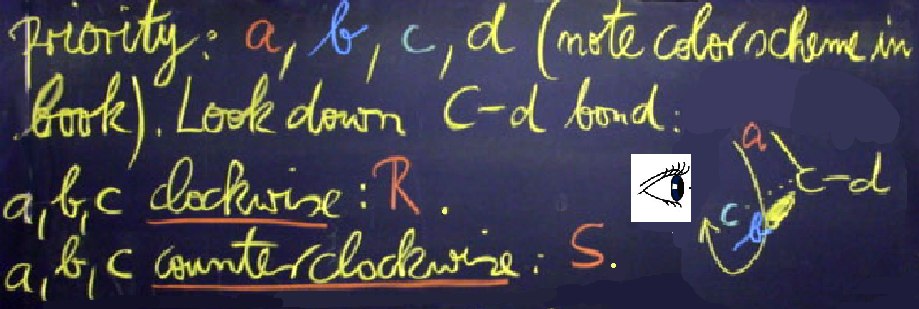 priority: a, b, c, d (note color scheme in
book). Look down C-d bond:
a
C-d
a, b, c clockwise: R.
c
b
a, b, c counterclockwise: S.